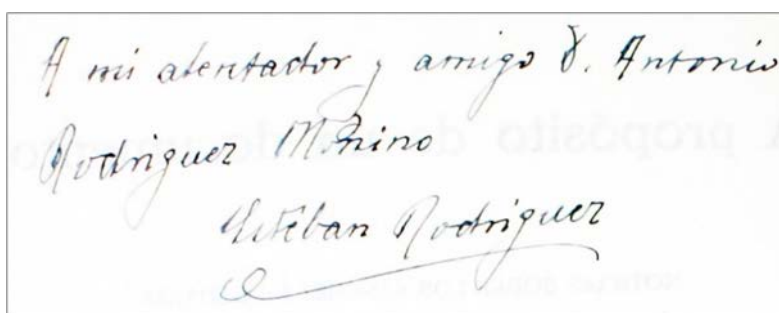 A mi alentador y amigo D. Antonio
Rodriguez Moñino
Esteban Rodriguez